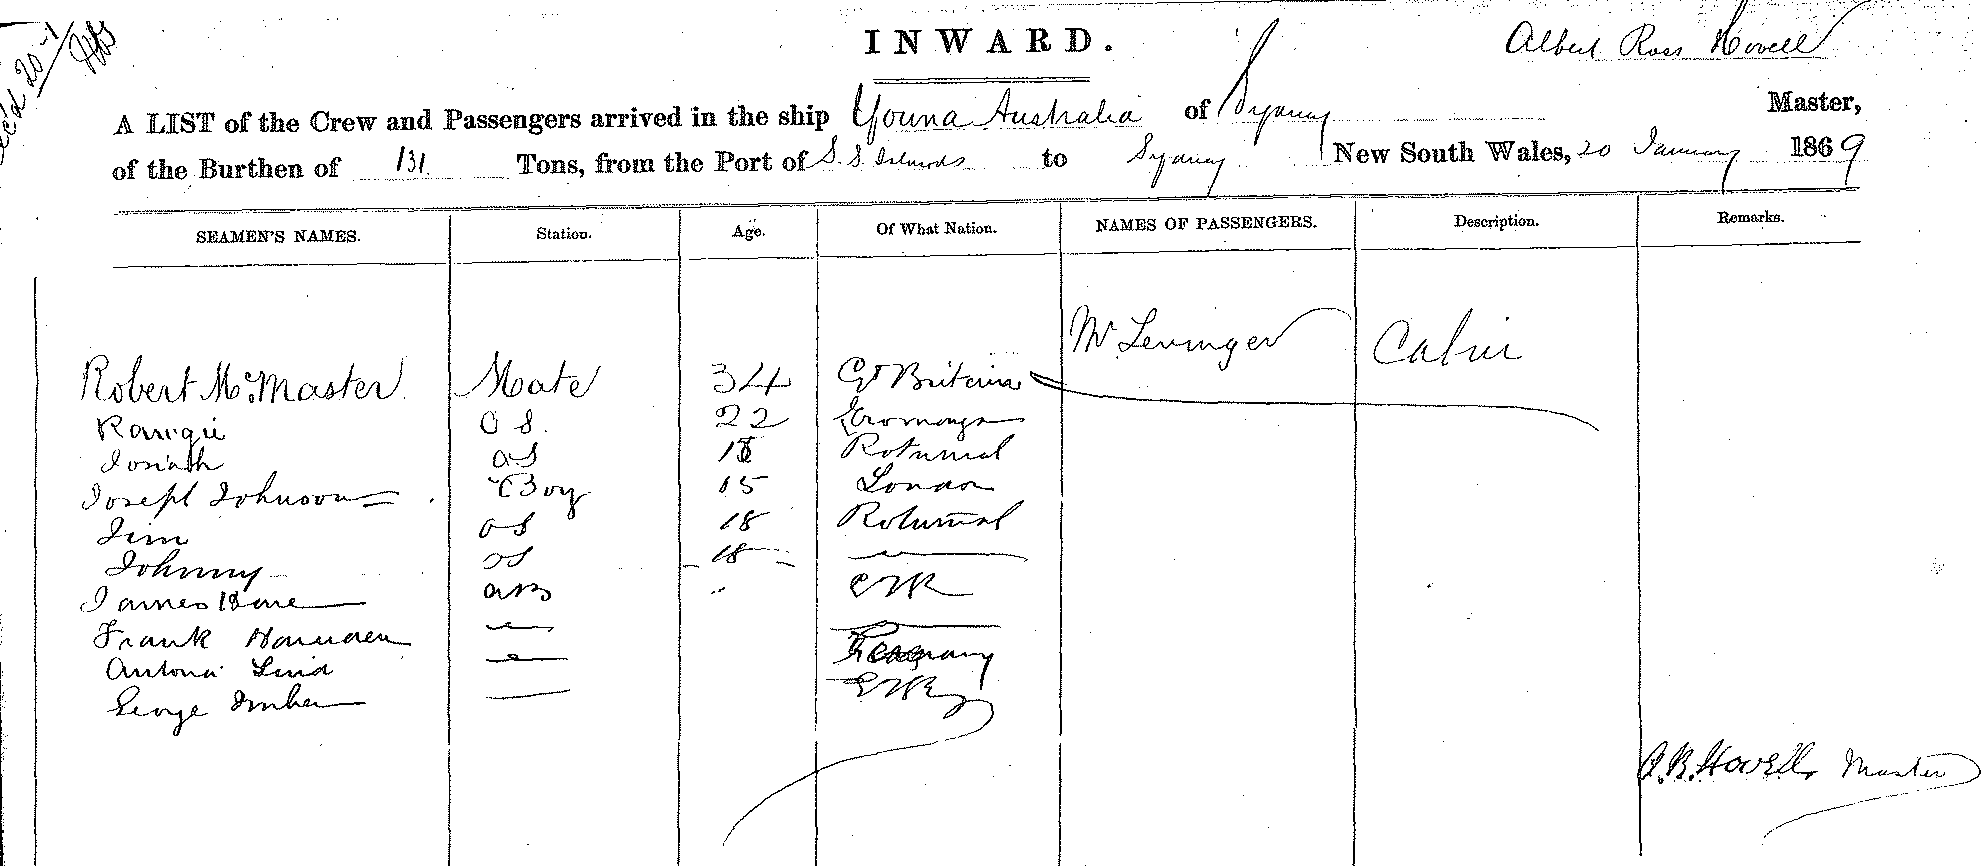 Rec'd 20-1
INWARD.
Albert Ross Hovell
A LIST of the Crew and Passengers arrived in the ship Young Australia of Sydney Master,
of the Burthen of 131 Tons, from the Port of S.S. Islands to Sydney New South Wales, 20 January 1869
SEAMEN'S NAMES. Station. Age. Of What Nation. NAMES OF PASSENGERS. Description. Remarks.
Mr Levinger Cabin
Robert McMaster Mate 34 Gt Britain
OS. 22 Eromanga
Josiah OS 18 Rotumah
Joseph Johnson Boy 15 London
Jim OS 18 Rotumah
Johnny OS 18
James AB
Frank
Antonio Lind Germany
George
A.R. Hovell, Master